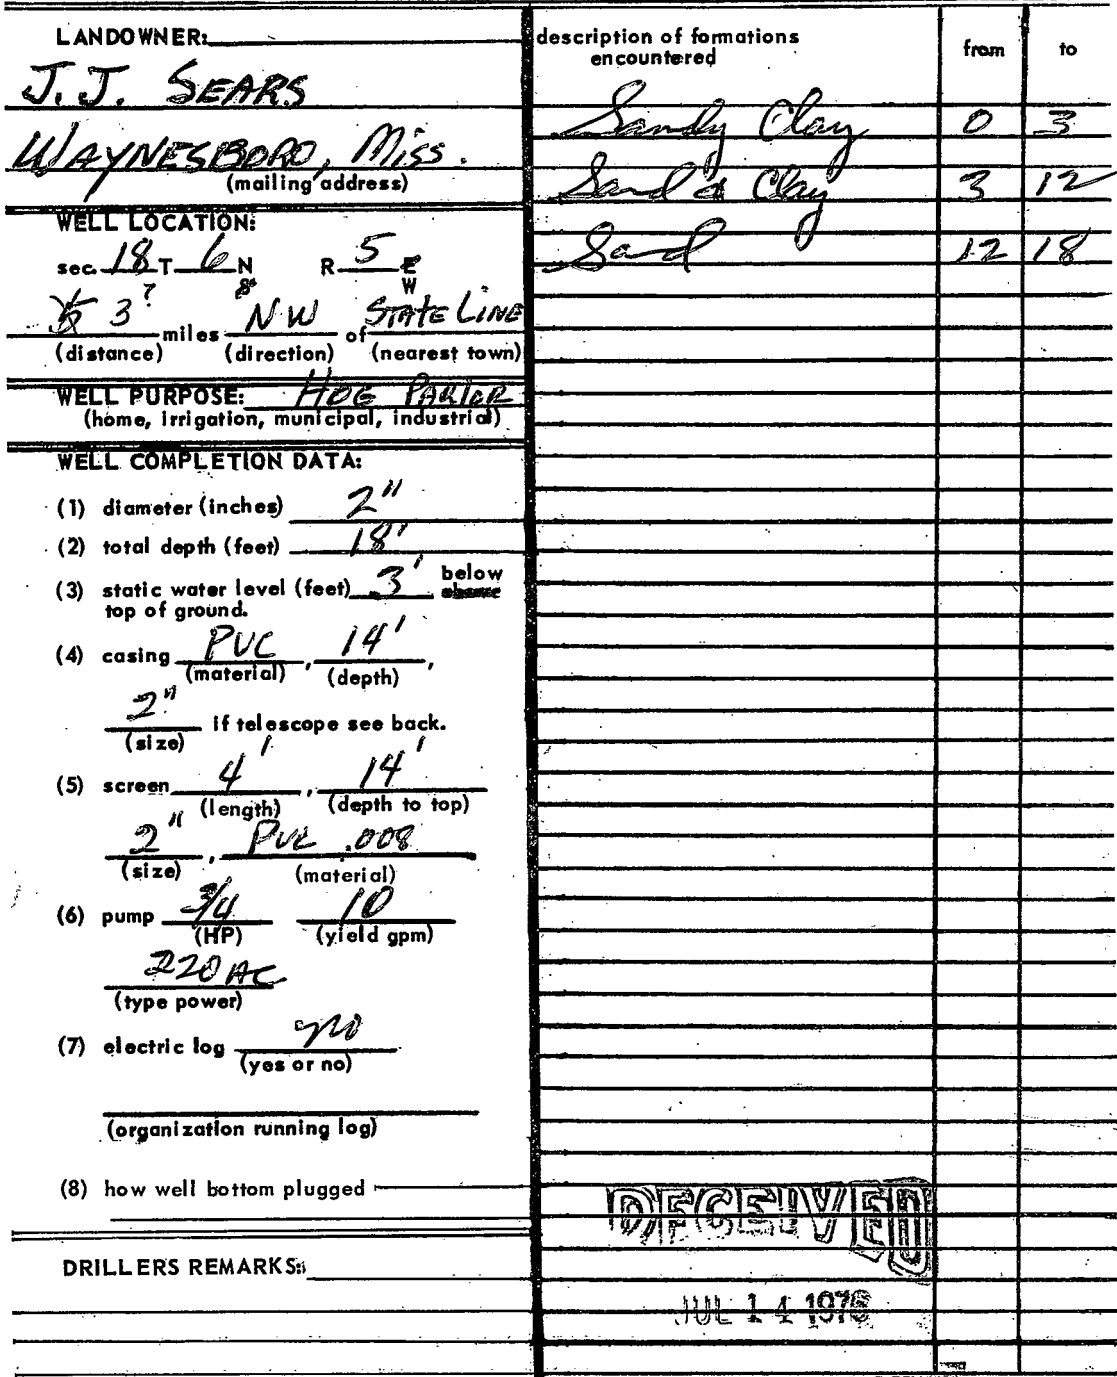 LANDOWNER:
J.J. SEARS
WAYNESBORO, Miss.
(mailing address)
WELL LOCATION:
sec. 18 T 6 N R 5 E
W
3 ? miles NW of STATE LINE
(distance) (direction) (nearest town)
WELL PURPOSE: HOG PARLOR
(home, irrigation, municipal, industrial)
WELL COMPLETION DATA:
(1) diameter (inches) 2"
(2) total depth (feet) 18'
(3) static water level (feet) 3' below
above
top of ground.
(4) casing PVC, 14',
(material) (depth)
2" if telescope see back.
(size)
(5) screen 4', 14'
(length) (depth to top)
2", PVC .008
(size) (material)
(6) pump 3/4 10
(HP) (yield gpm)
220 AC
(type power)
(7) electric log no
(yes or no)
(organization running log)
(8) how well bottom plugged
DRILLERS REMARKS:
description of formations
encountered
from to
Sandy Clay 0 3
Sand & Clay 3 12
Sand 12 18
RECEIVED
JUL 14 1976